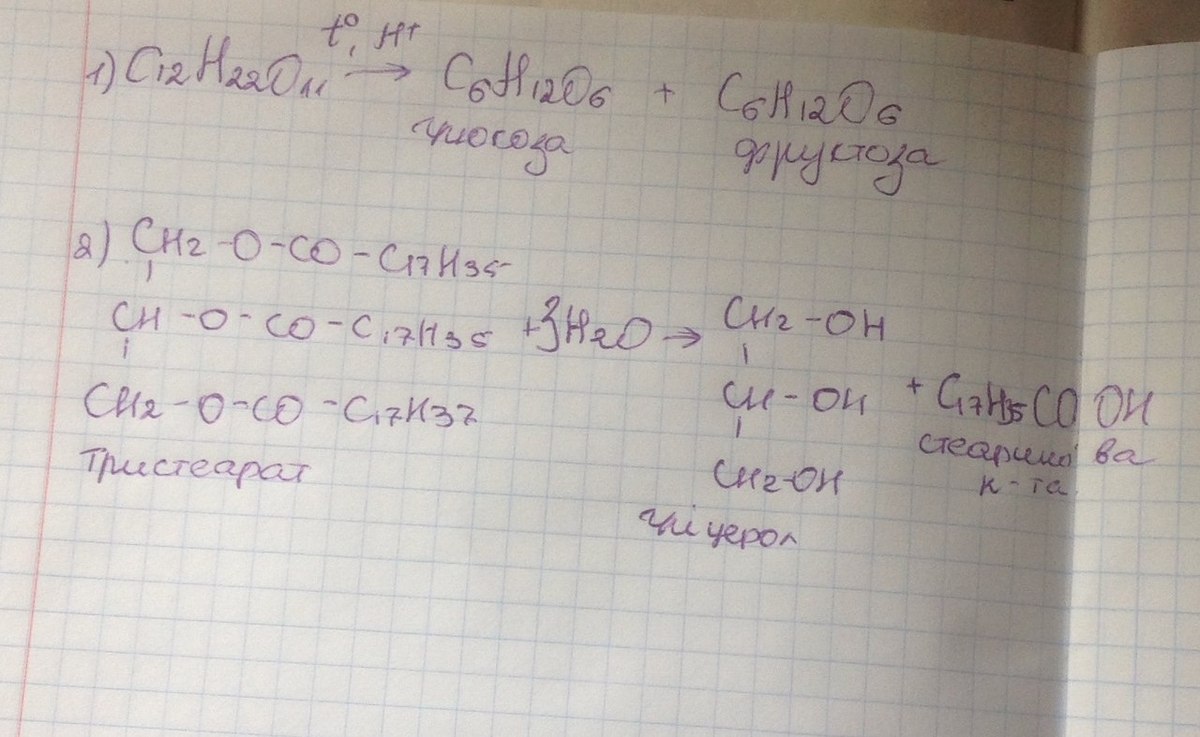 t°, H+
1) C12H22O11 → C6H12O6 + C6H12O6
глюкоза фруктоза
2) CH2-O-CO-C17H35
CH-O-CO-C17H35 +3H2O → CH2-OH
CH2-O-CO-C17H37 CH-OH + C17H35COOH
Тристеарат CH2-OH стеаринова к-та
гліцерол